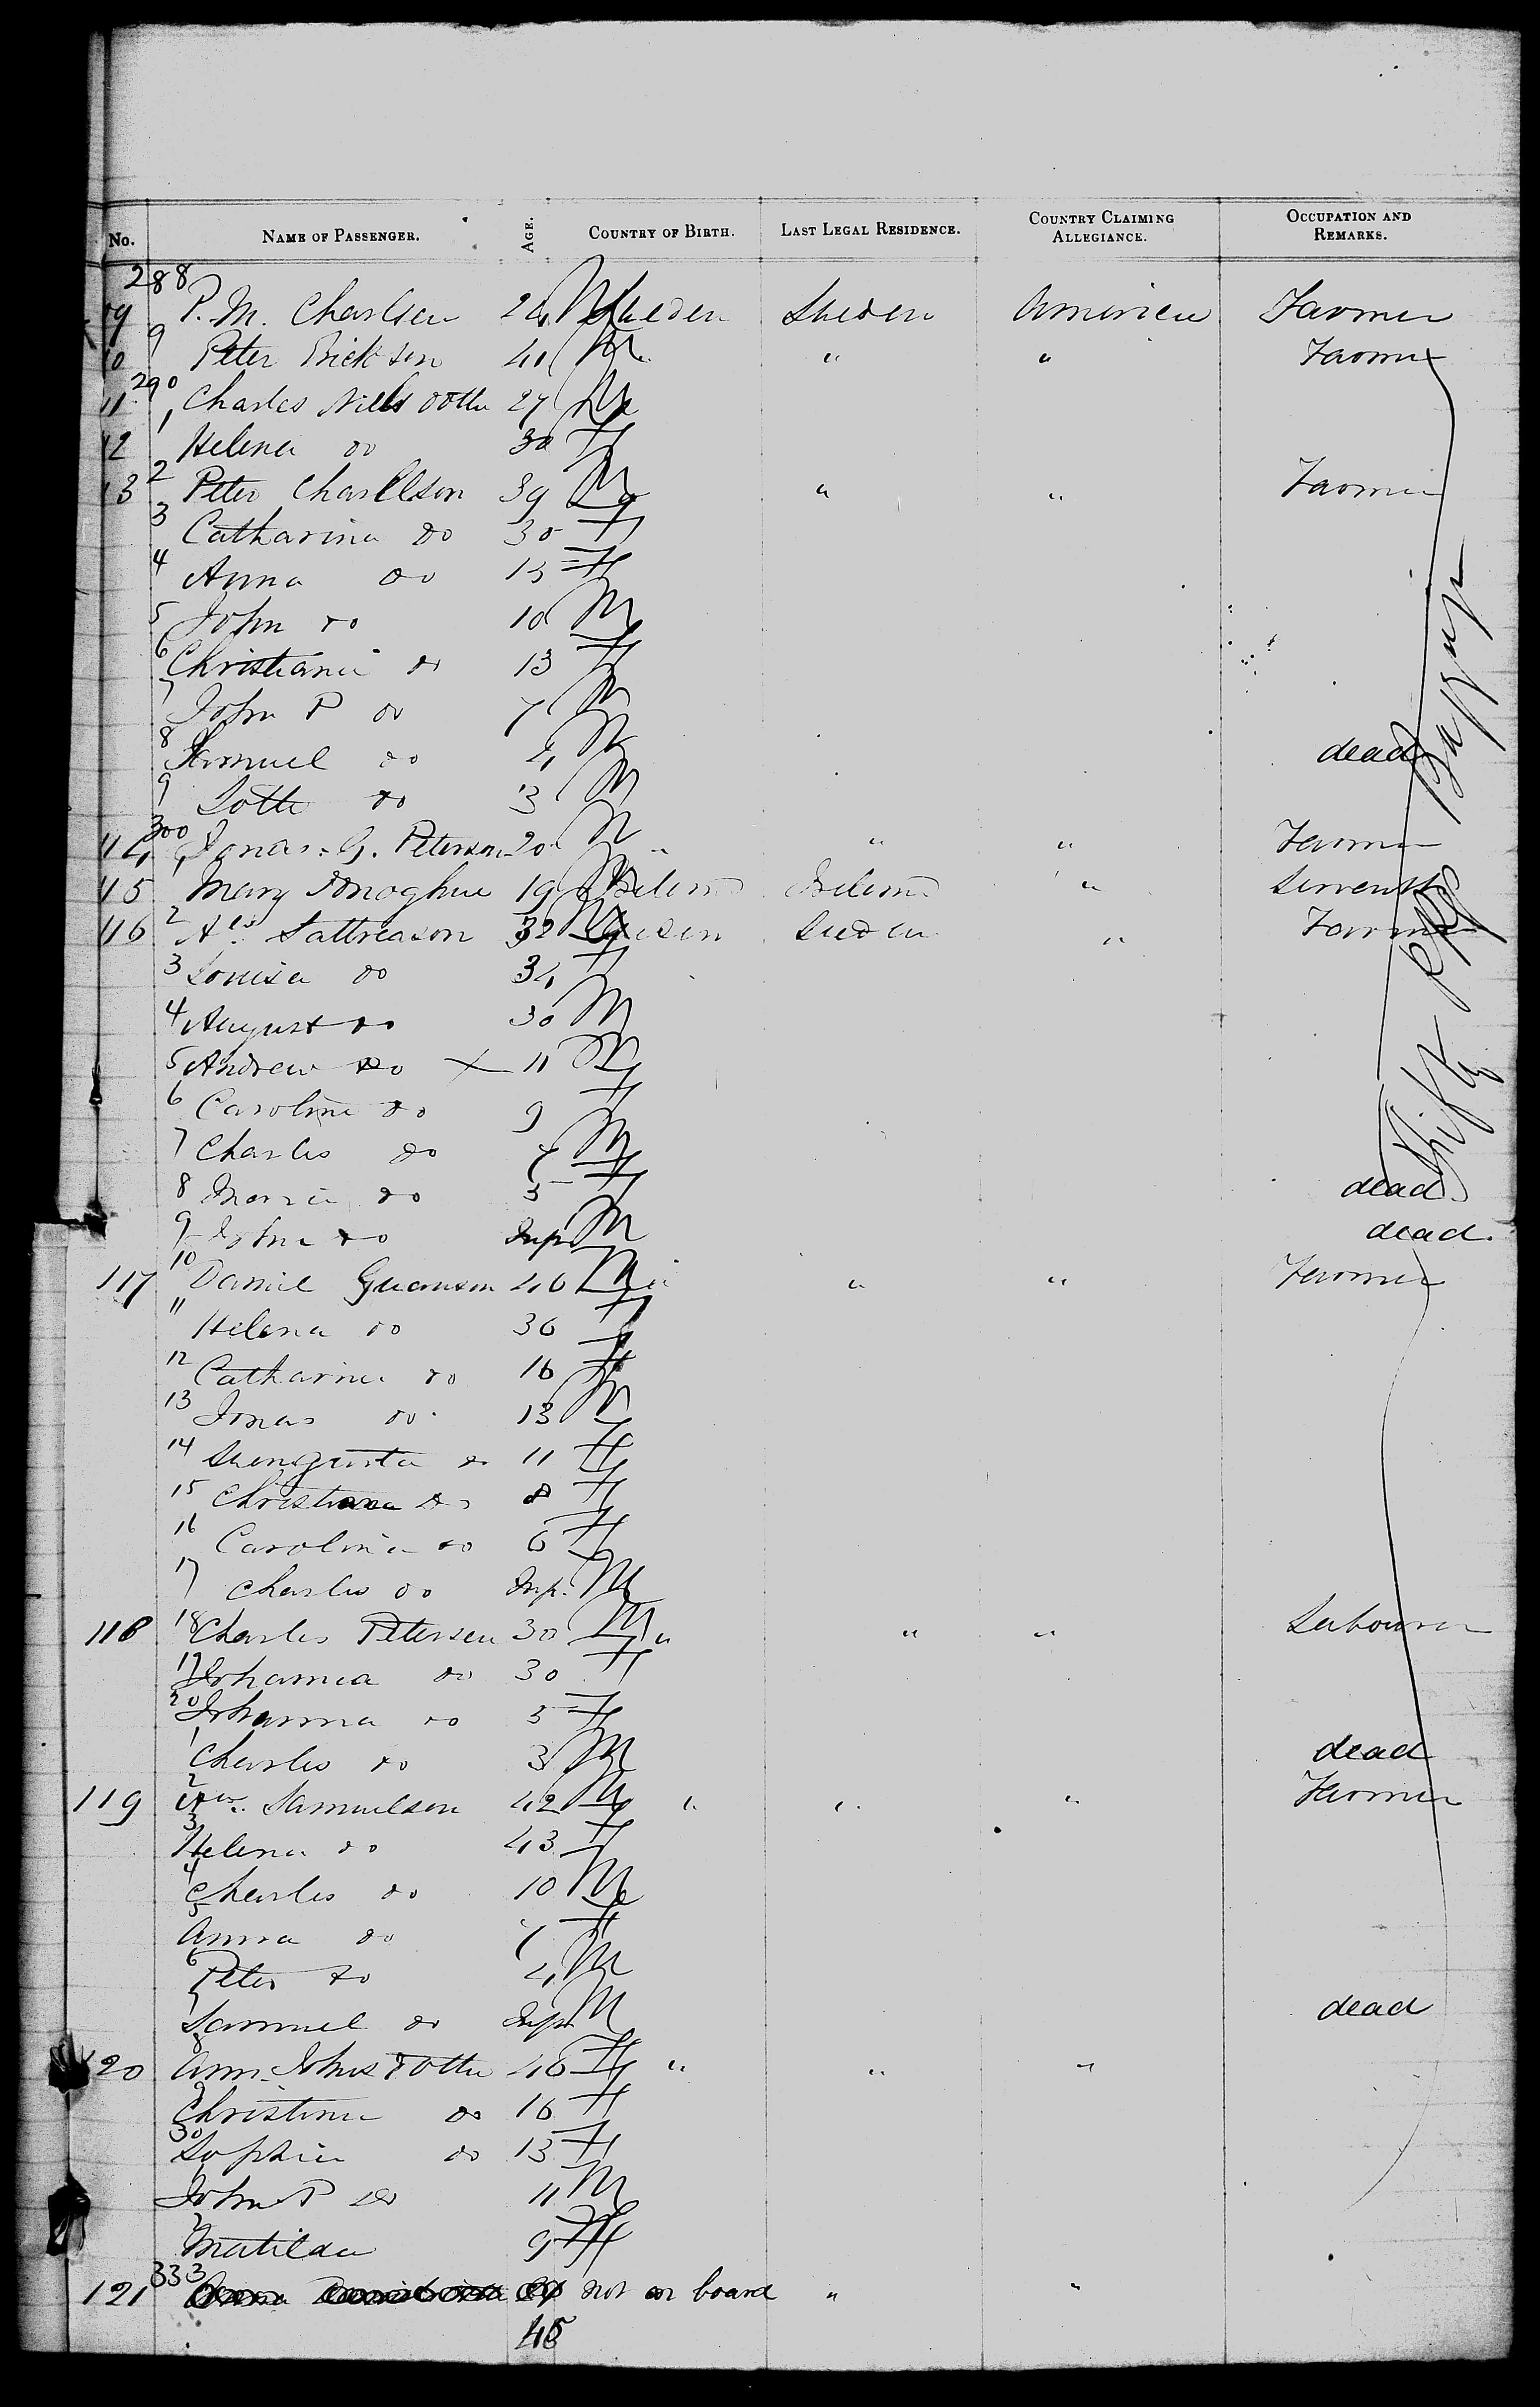 No. NAME OF PASSENGER. AGE. COUNTRY OF BIRTH. LAST LEGAL RESIDENCE. COUNTRY CLAIMING ALLEGIANCE. OCCUPATION AND REMARKS.
288
09 P. M. Charlsen 24 M Sweden Sweden America Farmer
9
10 Peter Erickson 40 M " " Farmer
290
11 Charles Nills dotter 27 M
1
12 Helena do 30 F
2
13 Peter Charllson 39 M " " Farmer
3 Catharina do 30 F
4 Anna do 15 F
5 John do 10 M
6 Christiania do 13 F
7 John P do 7 M
8 Samuel do 4 M dead
9 Lotte do 3 M
300
114 Jonas G. Peterson 20 M " " " Farmer
1
115 Mary Donoghue 19 Ireland Ireland " Servent
2
116 Als Sattreason 32 M Sweden Sweden " Farmer
3 Louisa do 34 F
4 August do 30 M
5 Andrew do X 11 M
6 Caroline do 9 F
7 Charles do 7 M
8 Maria do 5 F dead
9 John do Inf. M dead.
10
117 Daniel 46 M " " " Farmer
11 Helena do 36 F
12 Catharina do 16 F
13 Jonas do 13 M
14 do 11 F
15 Christiana do 8 F
16 Carolina do 6 F
17 Charles do Inf. M
118 18 Charles Petersen 30 M " " " Labourer
19 Johanna do 30 F
20 Johanna do 5 F
1 Charles do 3 M dead
2
119 Samuelson 42 M " " " Farmer
3 Helena do 43 F
4 Charles do 10 M
5 Anna do 7 F
6 Peter do 4 M
7 Samuel do Inf. M dead
8
120 Ann Johns dotter 46 F " " "
9 Christina do 16 F
30 Sophia do 13 F
1 John P do 11 M
2 Matilda 9 F
333
121 not on board " "
45
Fifty pkgs Baggage